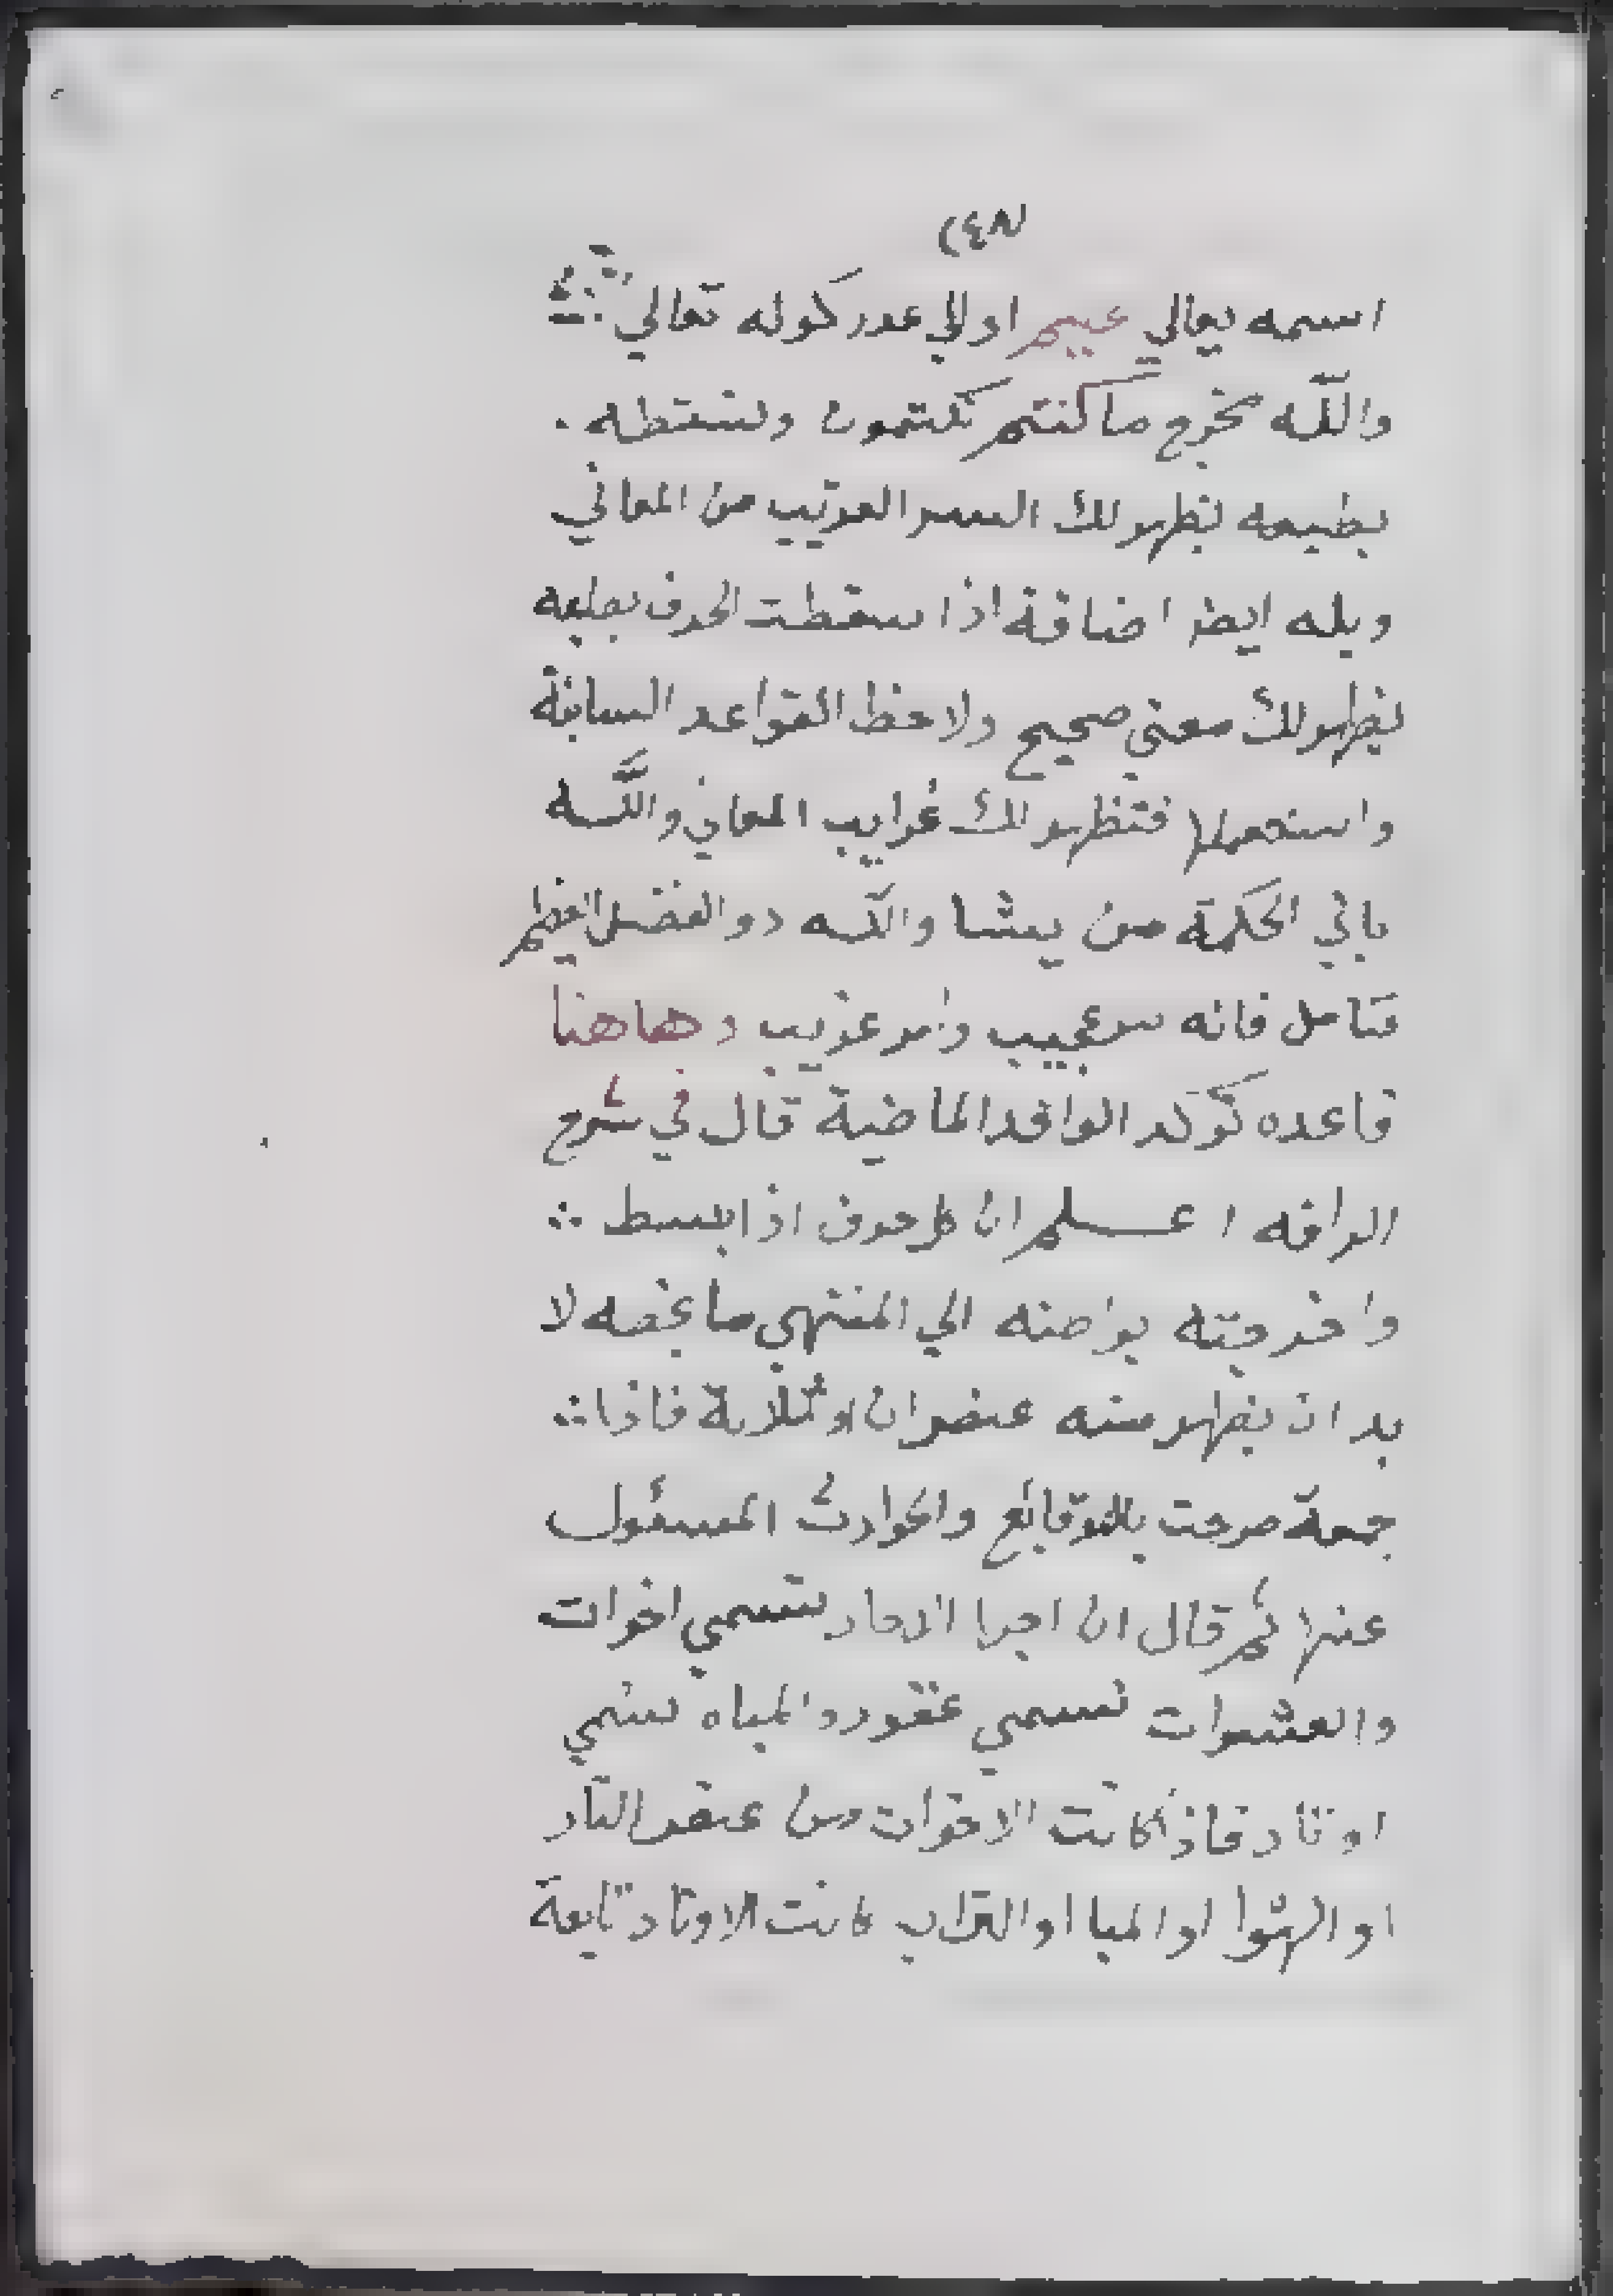 (٤٨)
اسمه تعالي عيم اوالي عدد كوله تعالي
والله مخرج ما كنتم تكتمون وتسقطه
بطبيعه يظهر لك السر الغريب من المعاني
وبله ايضا اضافة اذا سقطت الحرف بطبعه
يظهر لك معني صحيح ولاحظ القواعد السابقة
واستعملها فتظهر لك غرايب المعاني والله
ياتي الحكمة من يشا والله ذو الفضل العظيم
فتامل فانه سر عجيب وامر غريب وهاهنا
قاعده توكد الماضية قال في شرح
الوافه اعلم ان كل حرف اذا بسط
واخرجته الي المنتهي ما يخصه لا
بد ان يظهر منه عنصران او ثلاثة فاذا
جمعة صرحت بالوقائع والحوادث المسئول
عنها ثم قال ان اجرا الاحاد تسمي اخوات
والعشرات تسمي عقود والمياه تسمي
اوتاد فاذا كانت الاخوات من عنصر النار
او الهوا او الميا او التراب كانت الاوتاد تابعة